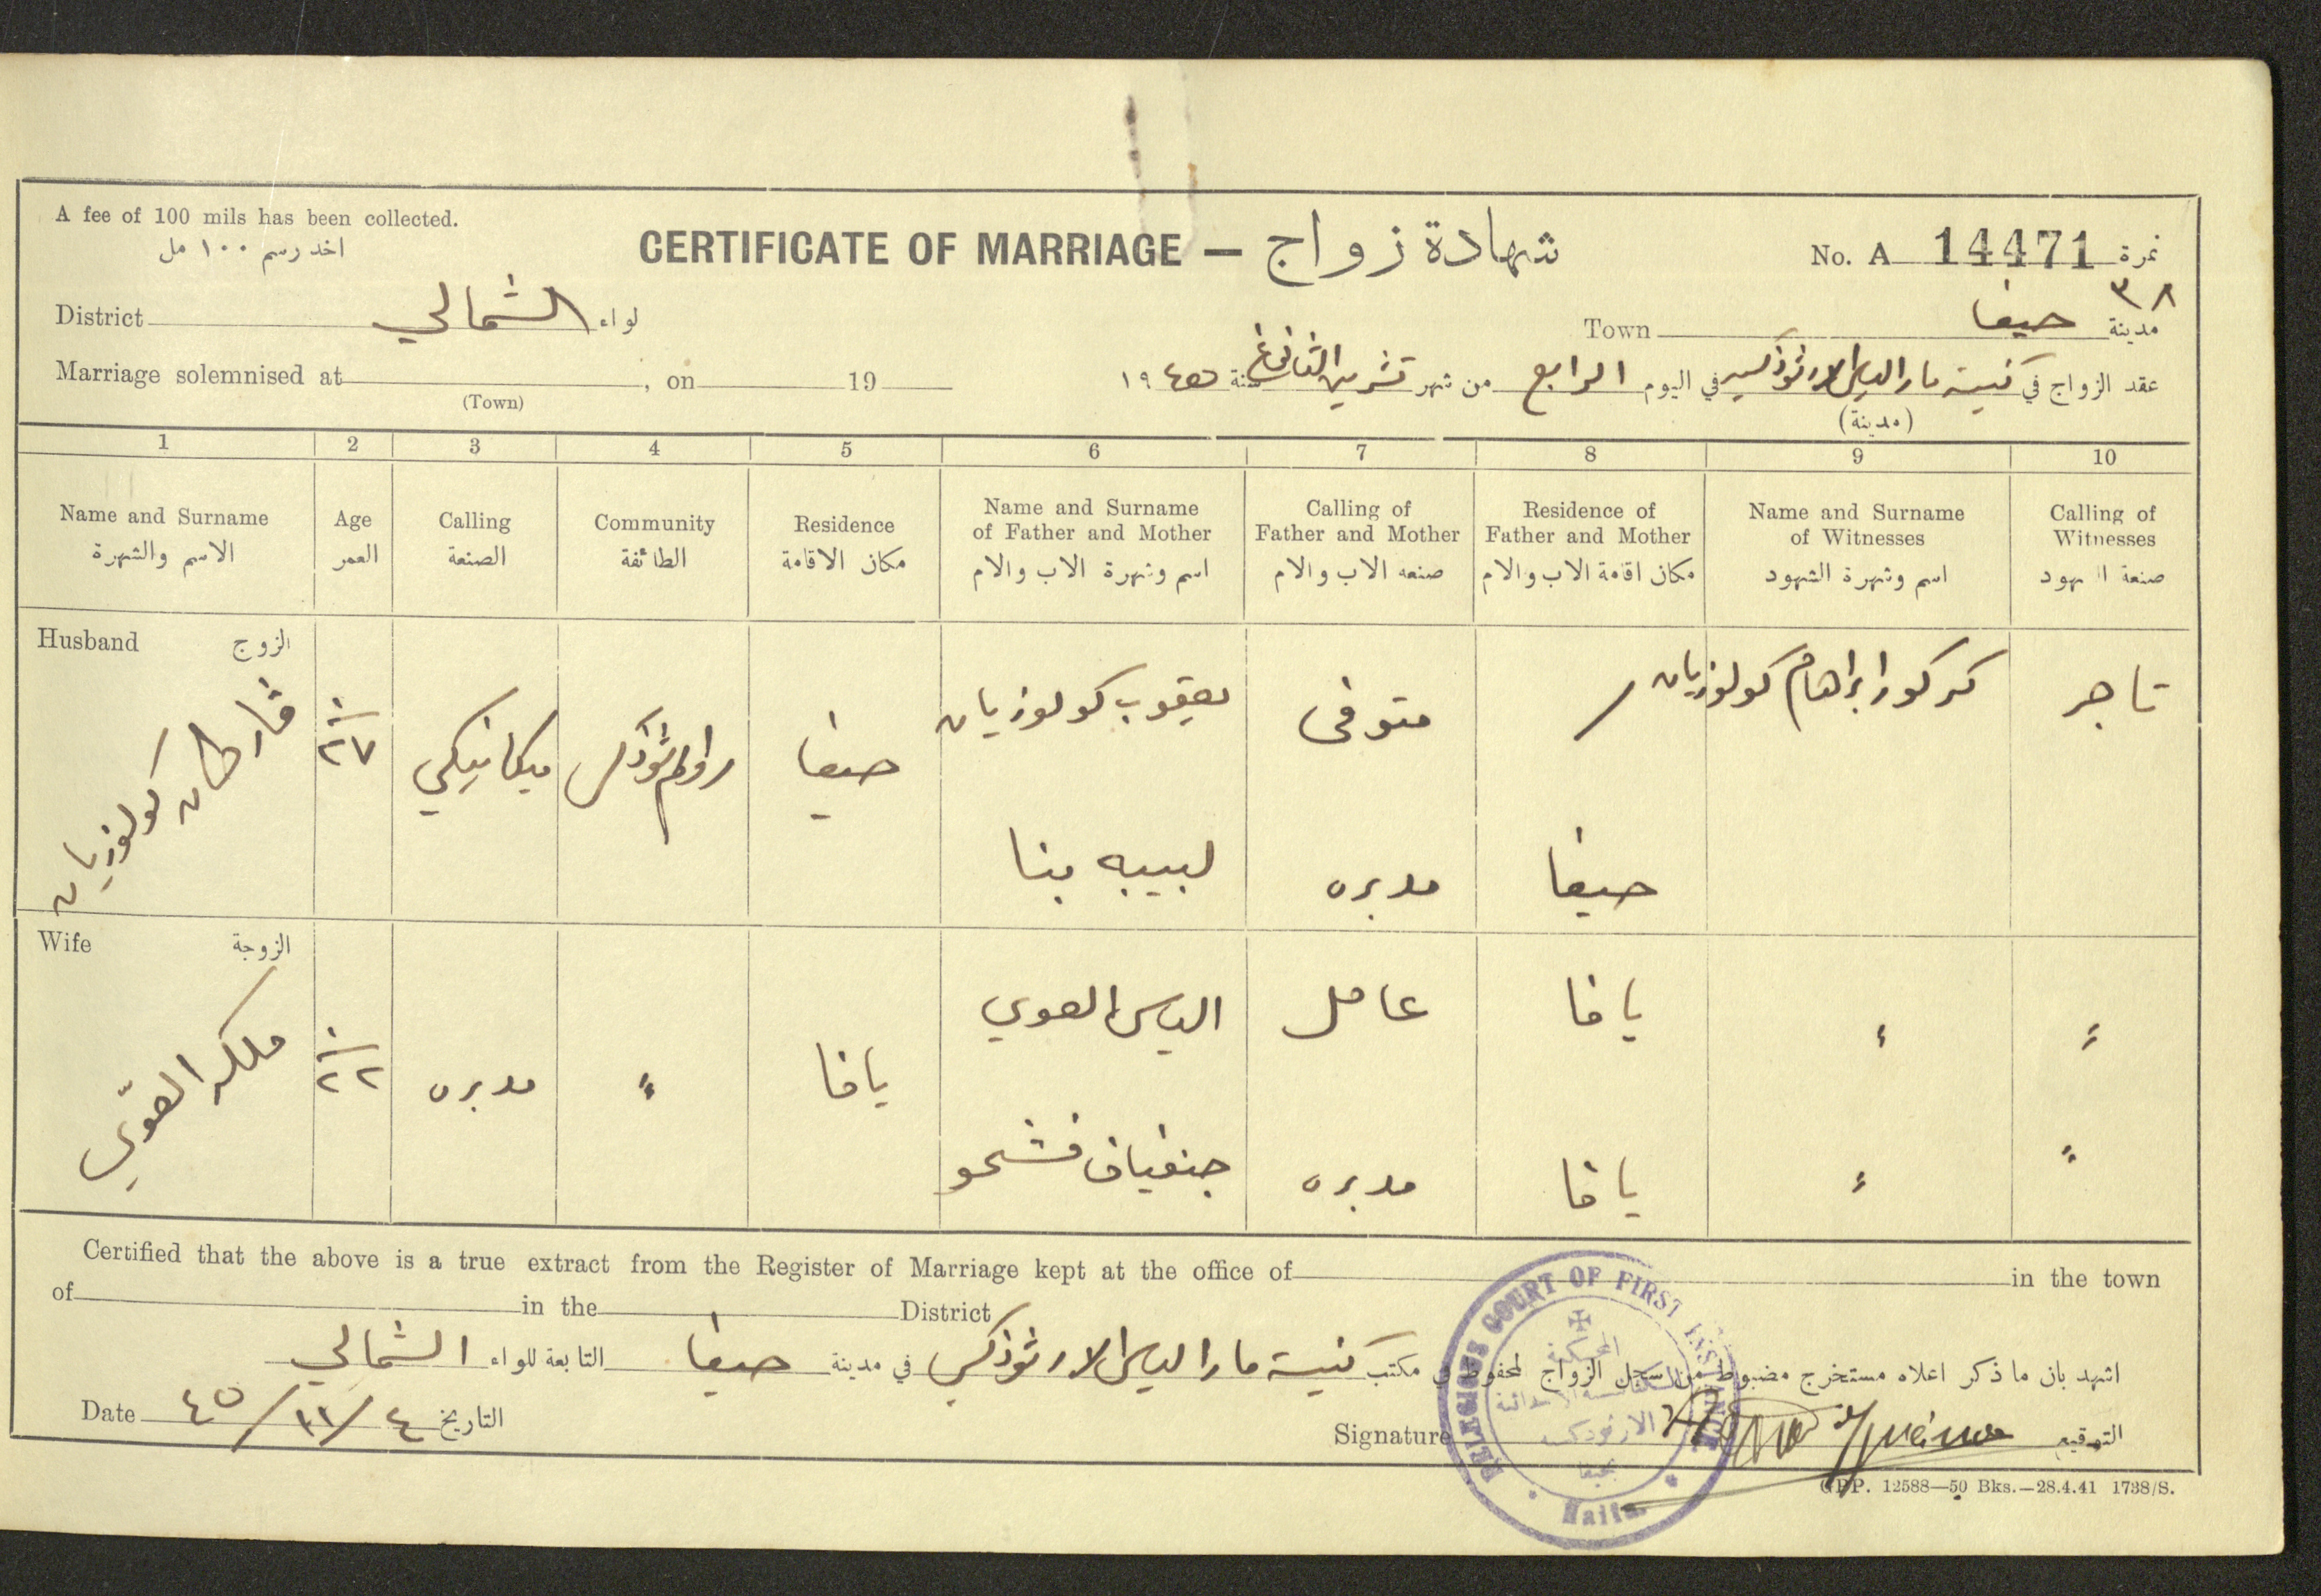 A fee of 100 mils has been collected.
اخذ رسم ١٠٠ مل
CERTIFICATE OF MARRIAGE — شهادة زواج
No. A 14471 نمرة
٣٨
District الشمالي لواء
Town حيفا مدينة
Marriage solemnised at , on 19
(Town)
عقد الزواج في كنيسة مار الياس الارثوذكسية في اليوم الرابع من شهر تشرين الثاني سنة ١٩٤٥
(مدينة)
1 2 3 4 5 6 7 8 9 10
Name and Surname الاسم والشهرة
Age العمر
Calling الصنعة
Community الطائفة
Residence مكان الاقامة
Name and Surname of Father and Mother اسم وشهرة الاب والام
Calling of Father and Mother صنعه الاب والام
Residence of Father and Mother مكان اقامة الاب والام
Name and Surname of Witnesses اسم وشهرة الشهود
Calling of Witnesses صنعة الشهود
Husband الزوج
ڤارطان كولوزيان
٢٧
ميكانيكي
حيفا
يعقوب كولوزيان
متوفى
كركور ابراهام كولوزيان
تاجر
لبيبه بنا
مدبره
حيفا
Wife الزوجة
ملكه الصوي
٢٢
مدبره
"
يافا
الياس الصوي
عامل
يافا
مدبره
يافا
Certified that the above is a true extract from the Register of Marriage kept at the office of in the town
of in the District
اشهد بان ما ذكر اعلاه مستخرج مضبوط من سجل الزواج المحفوظ في مكتب كنيسة مار الياس الارثوذكس في مدينة حيفا التابعة للواء الشمالي
Date ٤/١١/٤٥ التاريخ
Signature التوقيع
RELIGIOUS COURT OF FIRST INSTANCE
المحكمة
الكنائسية الابتدائية
الارثوذكسية
بحيفا
Haifa.
GPP. 12588—50 Bks.—28.4.41 1738/S.